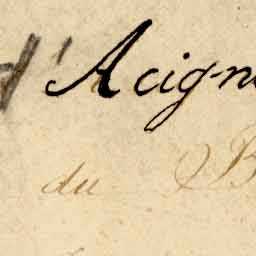 d'Acign
du B